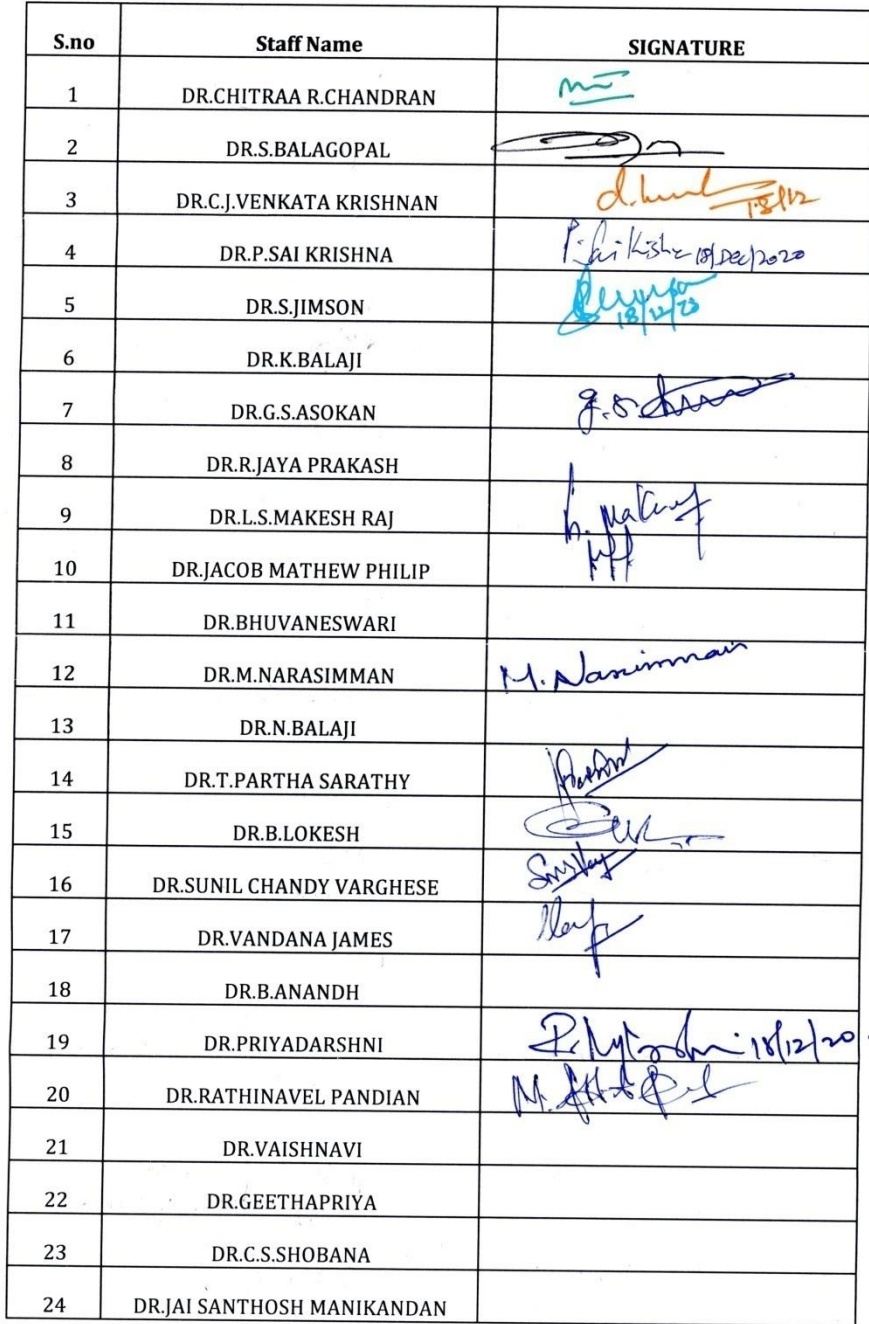 S.no Staff Name SIGNATURE
1 DR.CHITRAA R.CHANDRAN
2 DR.S.BALAGOPAL
3 DR.C.J.VENKATA KRISHNAN 18/12
4 DR.P.SAI KRISHNA P. Sai Kishr 18/Dec/2020
5 DR.S.JIMSON
6 DR.K.BALAJI
7 DR.G.S.ASOKAN g.s.
8 DR.R.JAYA PRAKASH
9 DR.L.S.MAKESH RAJ
10 DR.JACOB MATHEW PHILIP
11 DR.BHUVANESWARI
12 DR.M.NARASIMMAN M. Narasimman
13 DR.N.BALAJI
14 DR.T.PARTHA SARATHY
15 DR.B.LOKESH
16 DR.SUNIL CHANDY VARGHESE
17 DR.VANDANA JAMES
18 DR.B.ANANDH
19 DR.PRIYADARSHNI 18/12/20
20 DR.RATHINAVEL PANDIAN
21 DR.VAISHNAVI
22 DR.GEETHAPRIYA
23 DR.C.S.SHOBANA
24 DR.JAI SANTHOSH MANIKANDAN